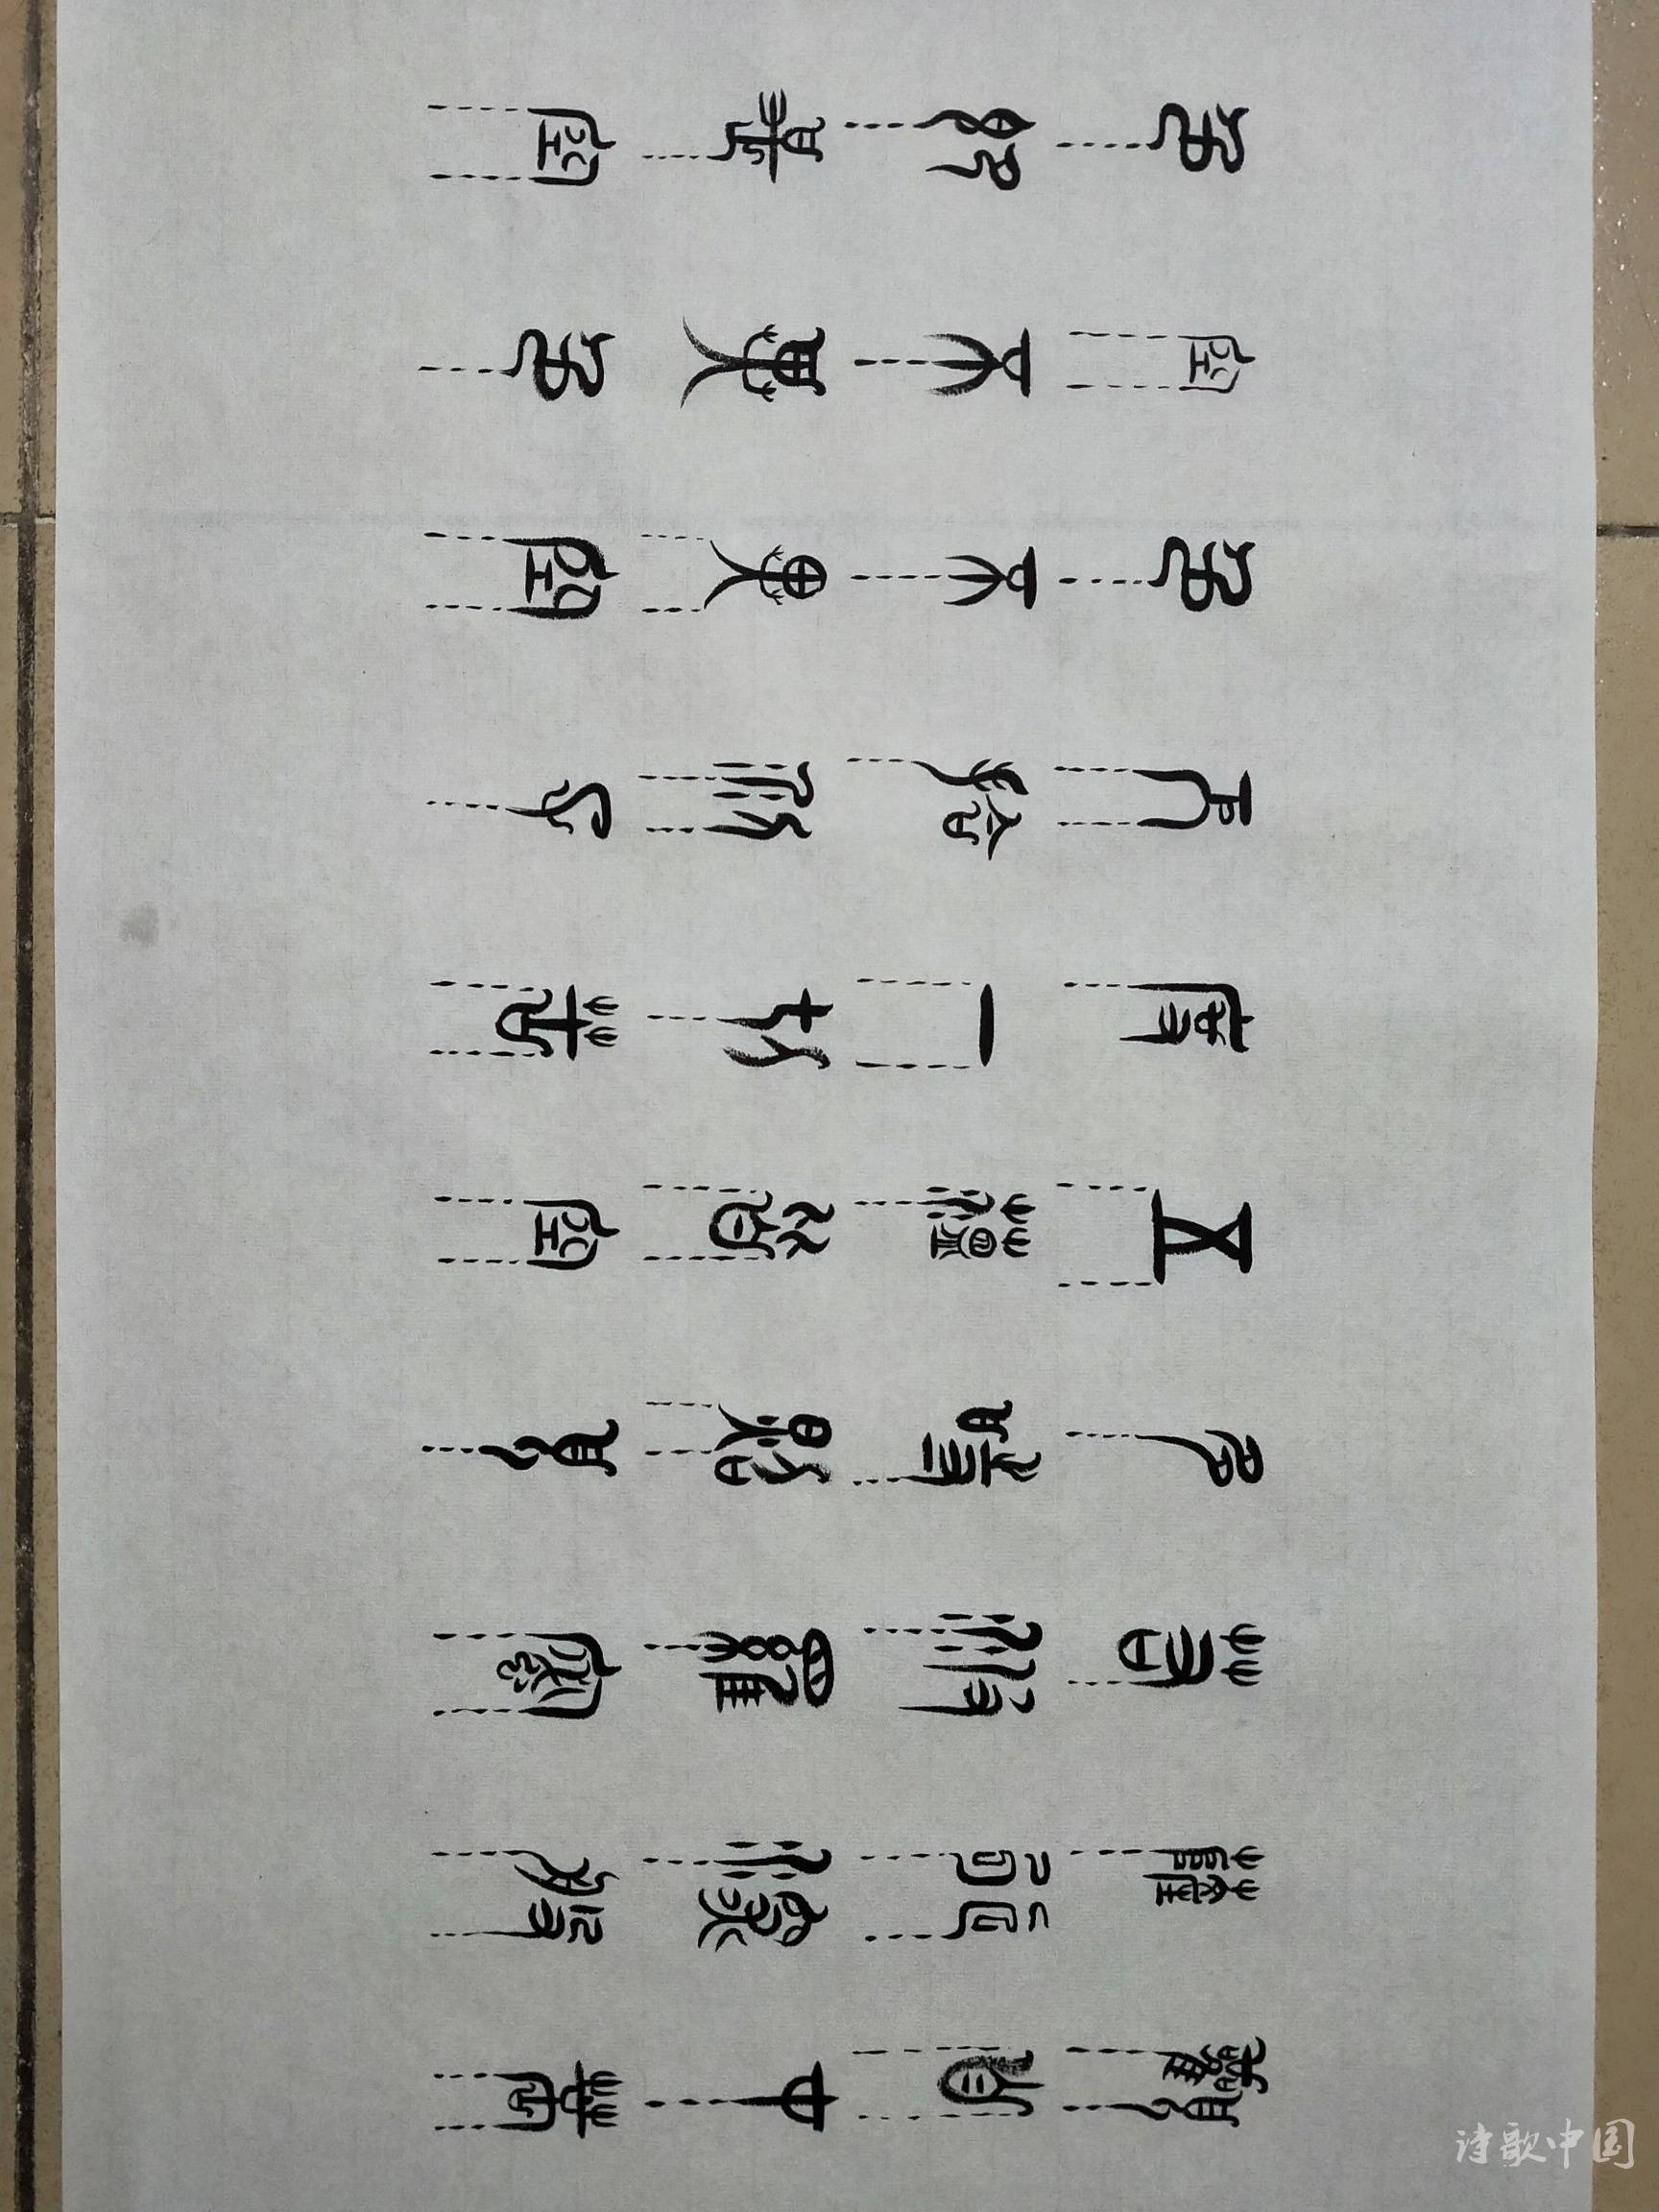 觀自在菩
薩行深般
若波羅蜜
多時照見
五蘊皆空
度一切苦
厄舍利子
色不異空
空不異色
色即是空
诗歌中国